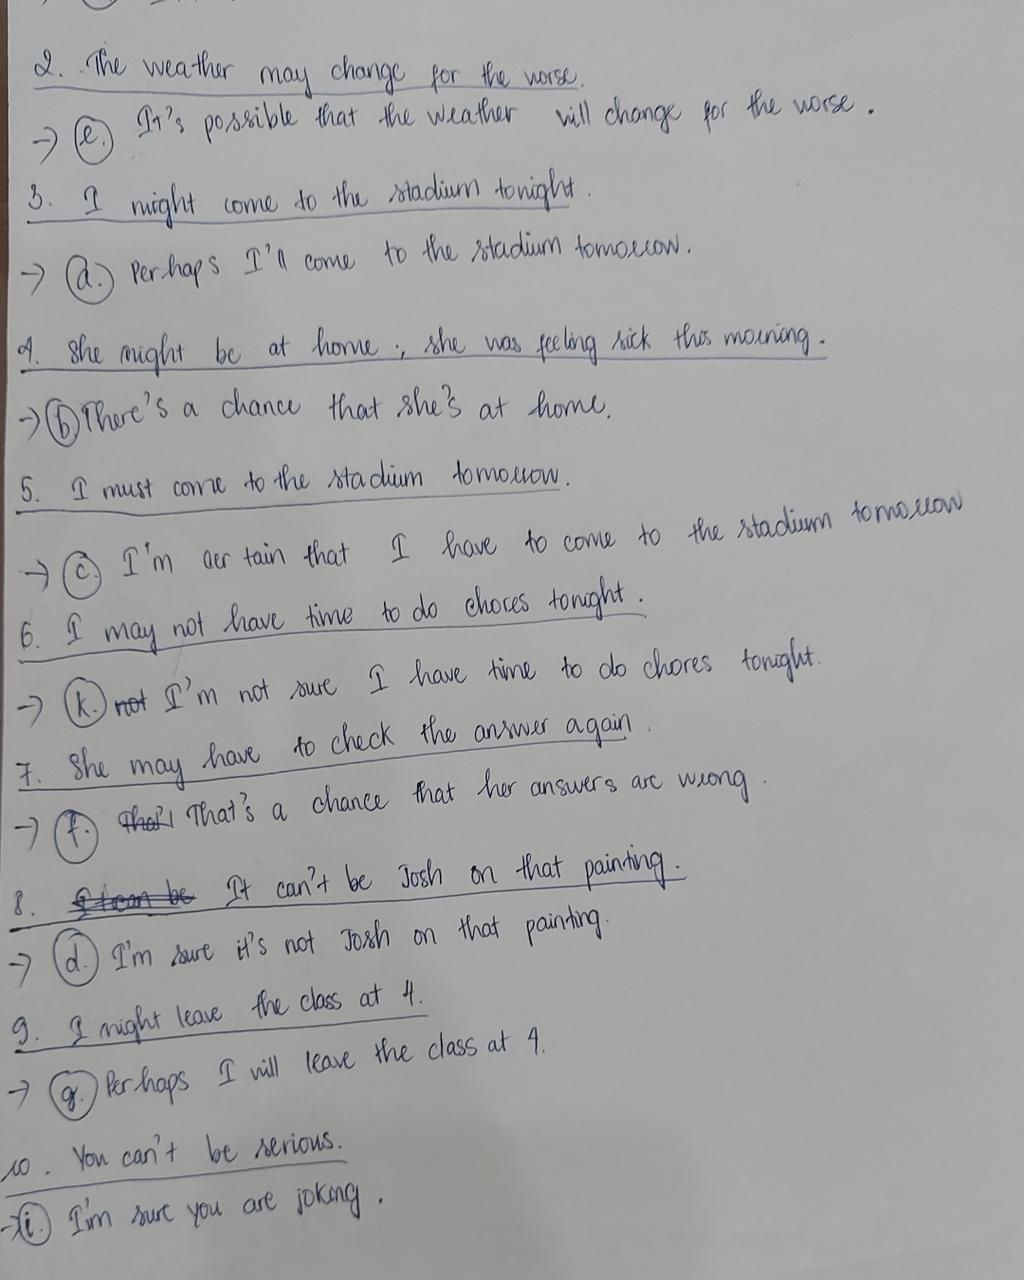 2. The weather may change for the worse.
→ e. It's possible that the weather will change for the worse.
3. I might come to the stadium tonight.
→ a. Perhaps I'll come to the stadium tomorrow.
4. She might be at home; she was feeling sick this morning.
→ b There's a chance that she's at home.
5. I must come to the stadium tomorrow.
→ c. I'm certain that I have to come to the stadium tomorrow
6. I may not have time to do chores tonight.
→ k. not I'm not sure I have time to do chores tonight.
7. She may have to check the answer again.
→ f. That's a chance that her answers are wrong.
8. It can be It can't be Josh on that painting.
→ d. I'm sure it's not Josh on that painting.
9. I might leave the class at 4.
→ g. Perhaps I will leave the class at 4.
10. You can't be serious.
→ i. I'm sure you are joking.